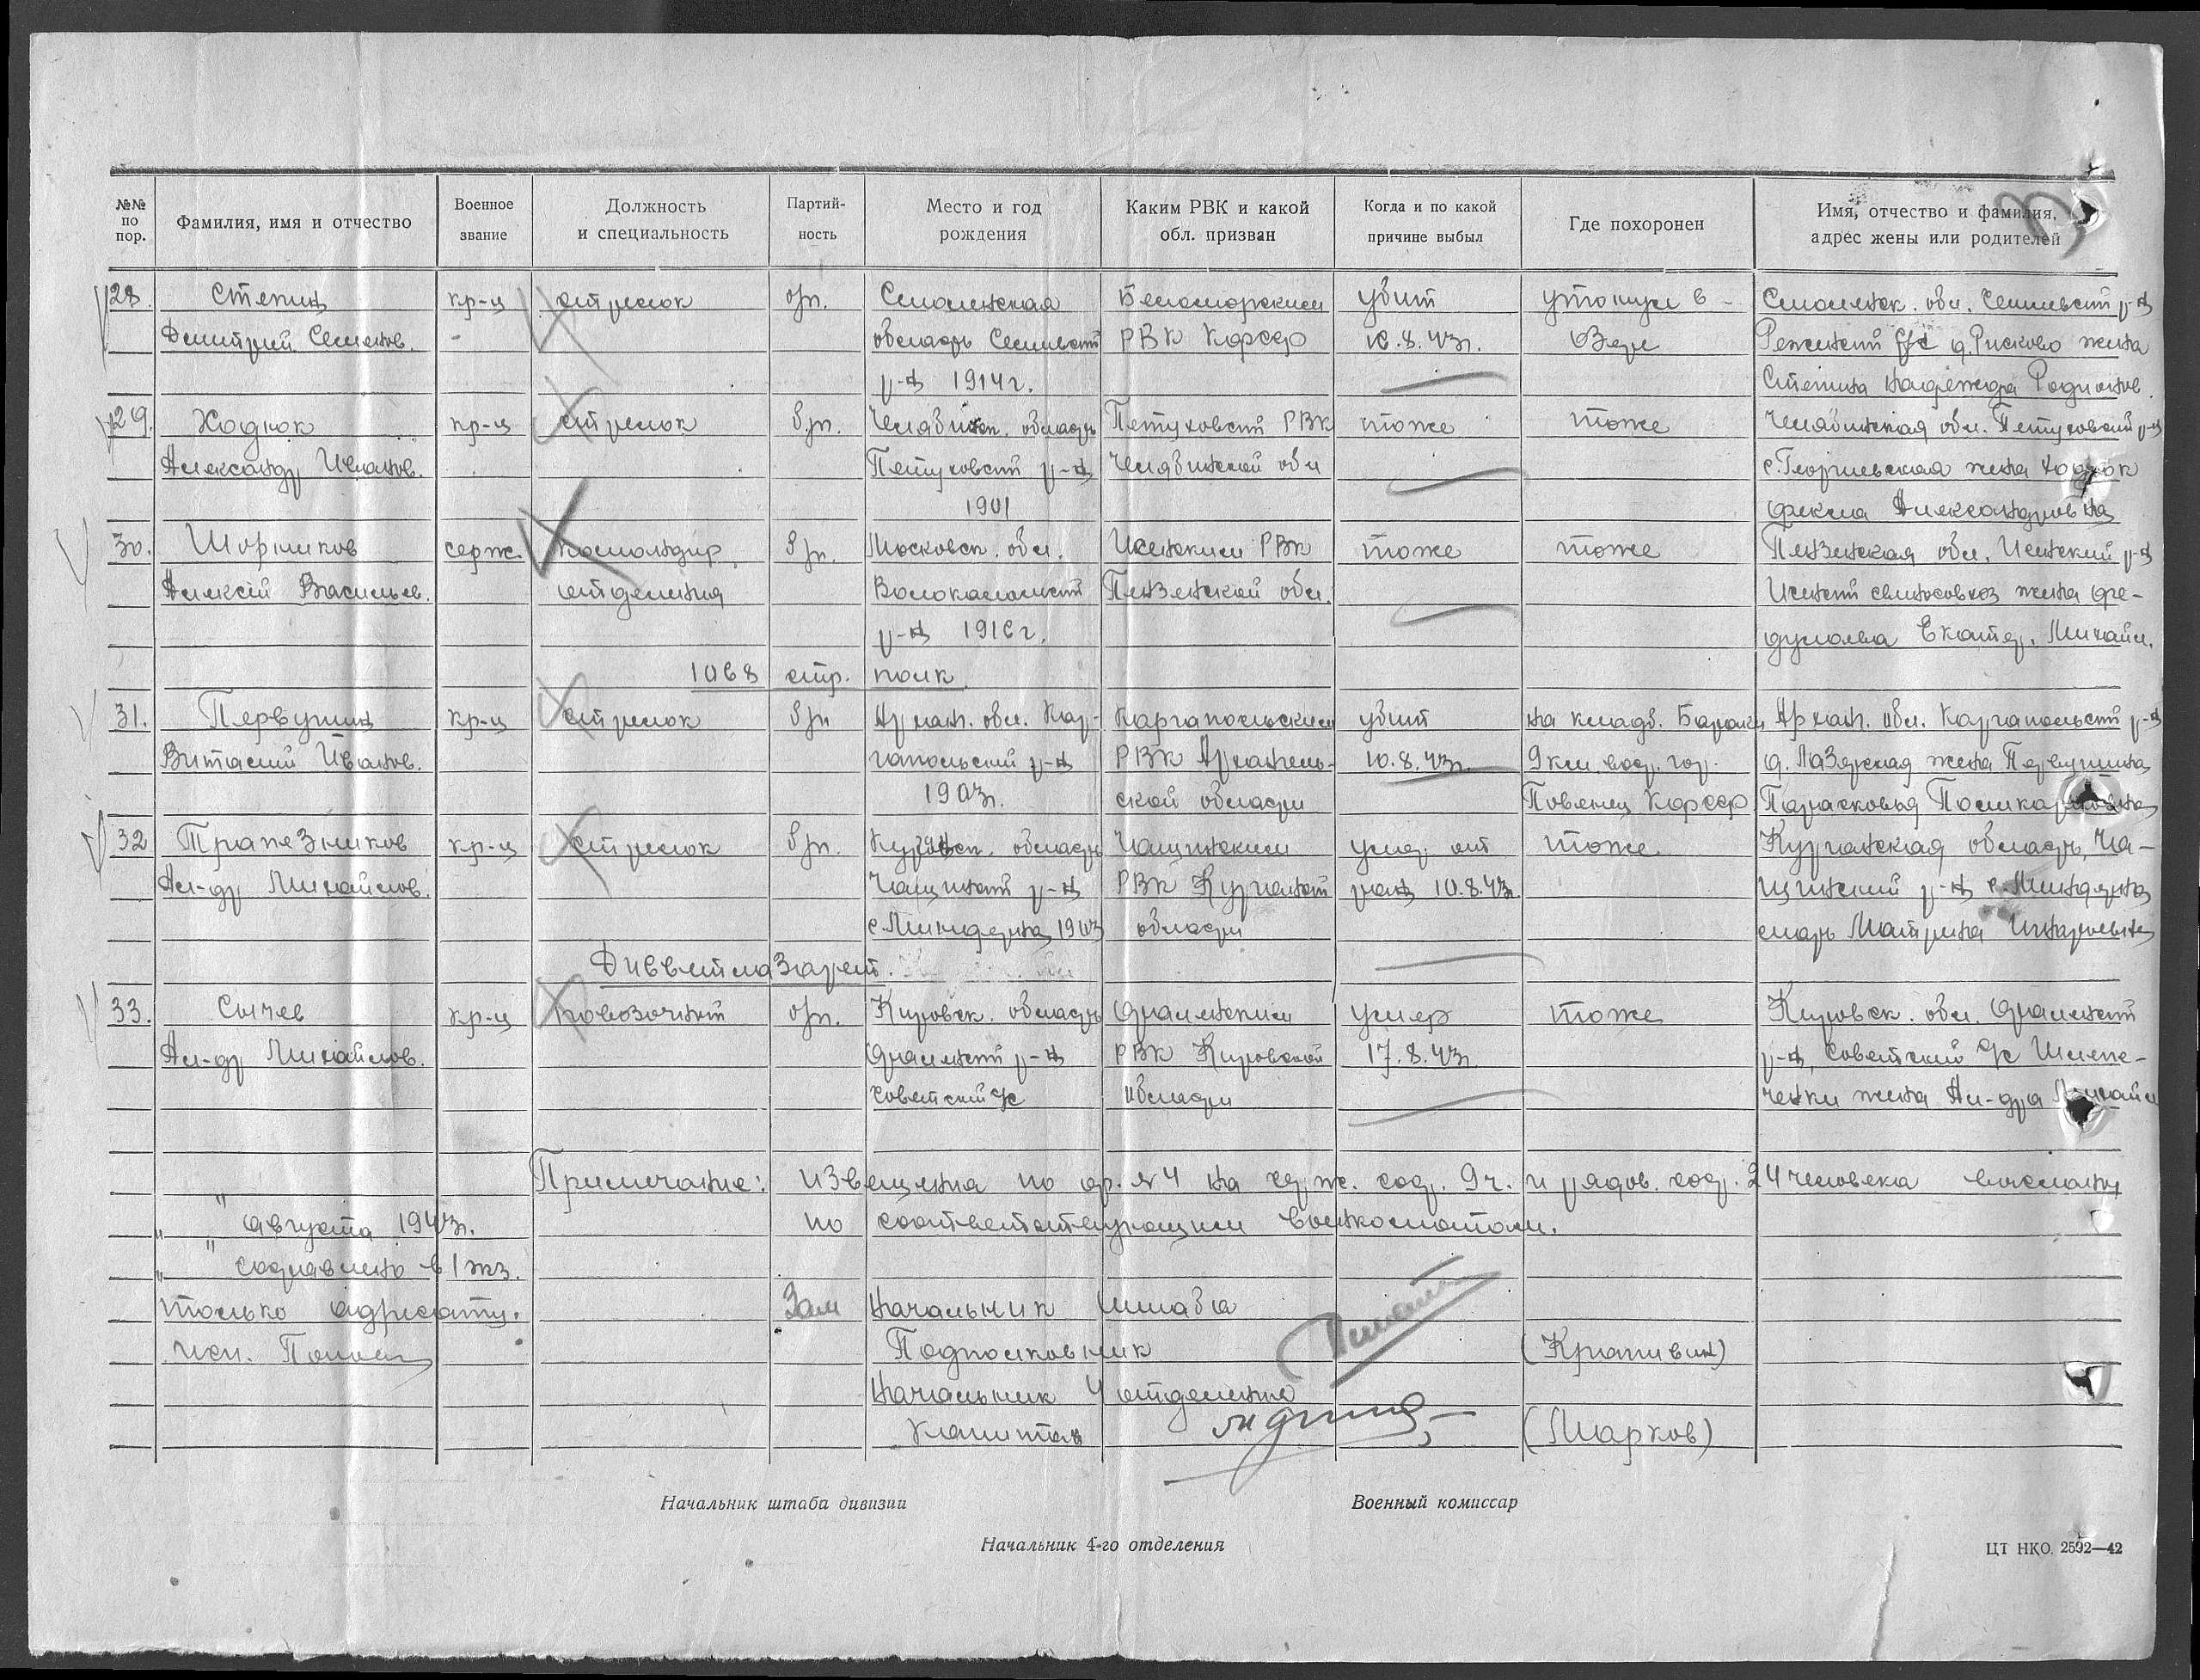 №№ по пор. Фамилия, имя и отчество Военное звание Должность и специальность Партий- ность Место и год рождения Каким РВК и какой обл. призван Когда и по какой причине выбыл Где похоронен Имя, отчество и фамилия, адрес жены или родителей
28. Степин кр-ц стрелок б/п. Смоленская Беломорским убит утонул в Смоленск. обл.
Дмитрий Семенов. область РВК Карсср .8.43г. озере д. Рисково жена
р-н 1914 г. Степина Надежда Родионов.
29. Ходюк кр-ц стрелок б/п. Челябинск. область Петуховский РВК тоже тоже Челябинская обл. Петуховский р-н
Александр Иванов. Петуховский р-н Челябинской обл с. Георгиевская жена Ходюк
1901 Фекла Александровна
30. Шорников серж. командир б/п. Московск. обл. РВК тоже тоже Пензенская обл. р-н
Алексей Васильев. отделения Волоколамский Пензенской обл. свиносовхоз жена Фе-
р-н 191 г. Екатер. Михайл.
1068 стр. полк
31. Первушин кр-ц стрелок б/п Архан. обл. Кар- Каргапольским убит на кладб. Архан. обл. Каргапольский р-н
Виталий Иванов. гапольский р-н РВК Архангель- 10.8.43г. 9 км. гор. жена Первушина
1903г. ской области Повенец Карсср Парасковья Поликарповна
32 Трапезников кр-ц стрелок б/п. область Чашинским умер от тоже Курганская область, Ча-
Ал-др Михайлов. Чашинский р-н РВК Курганский ран 10.8.43г. шинский р-н
1903 области мать Матрена
Дивветлазарет.
33. Сычев кр-ц повозочный б/п. Кировск. область Фаленским умер тоже Кировск. обл. Фаленский
Ал-др Михайлов. Фаленский р-н РВК Кировской 17.8.43г р-н, Советский с/с Шмеле-
Советский с/с области жена Ал-дра Михайл
Примечание: извещения по ф. №4 на серж. сост. 9 ч. и рядов. сост. 24 человека высланы
" " августа 1943г. по соответствующим военкоматам.
" " составлено в 1 экз.
только адресату. Зам Начальник штаба
исп. Подполковник (Крапивин)
Начальник 4 отделения
Капитан (Марков)
Начальник штаба дивизии Военный комиссар
Начальник 4-го отделения
ЦТ НКО. 2592—42